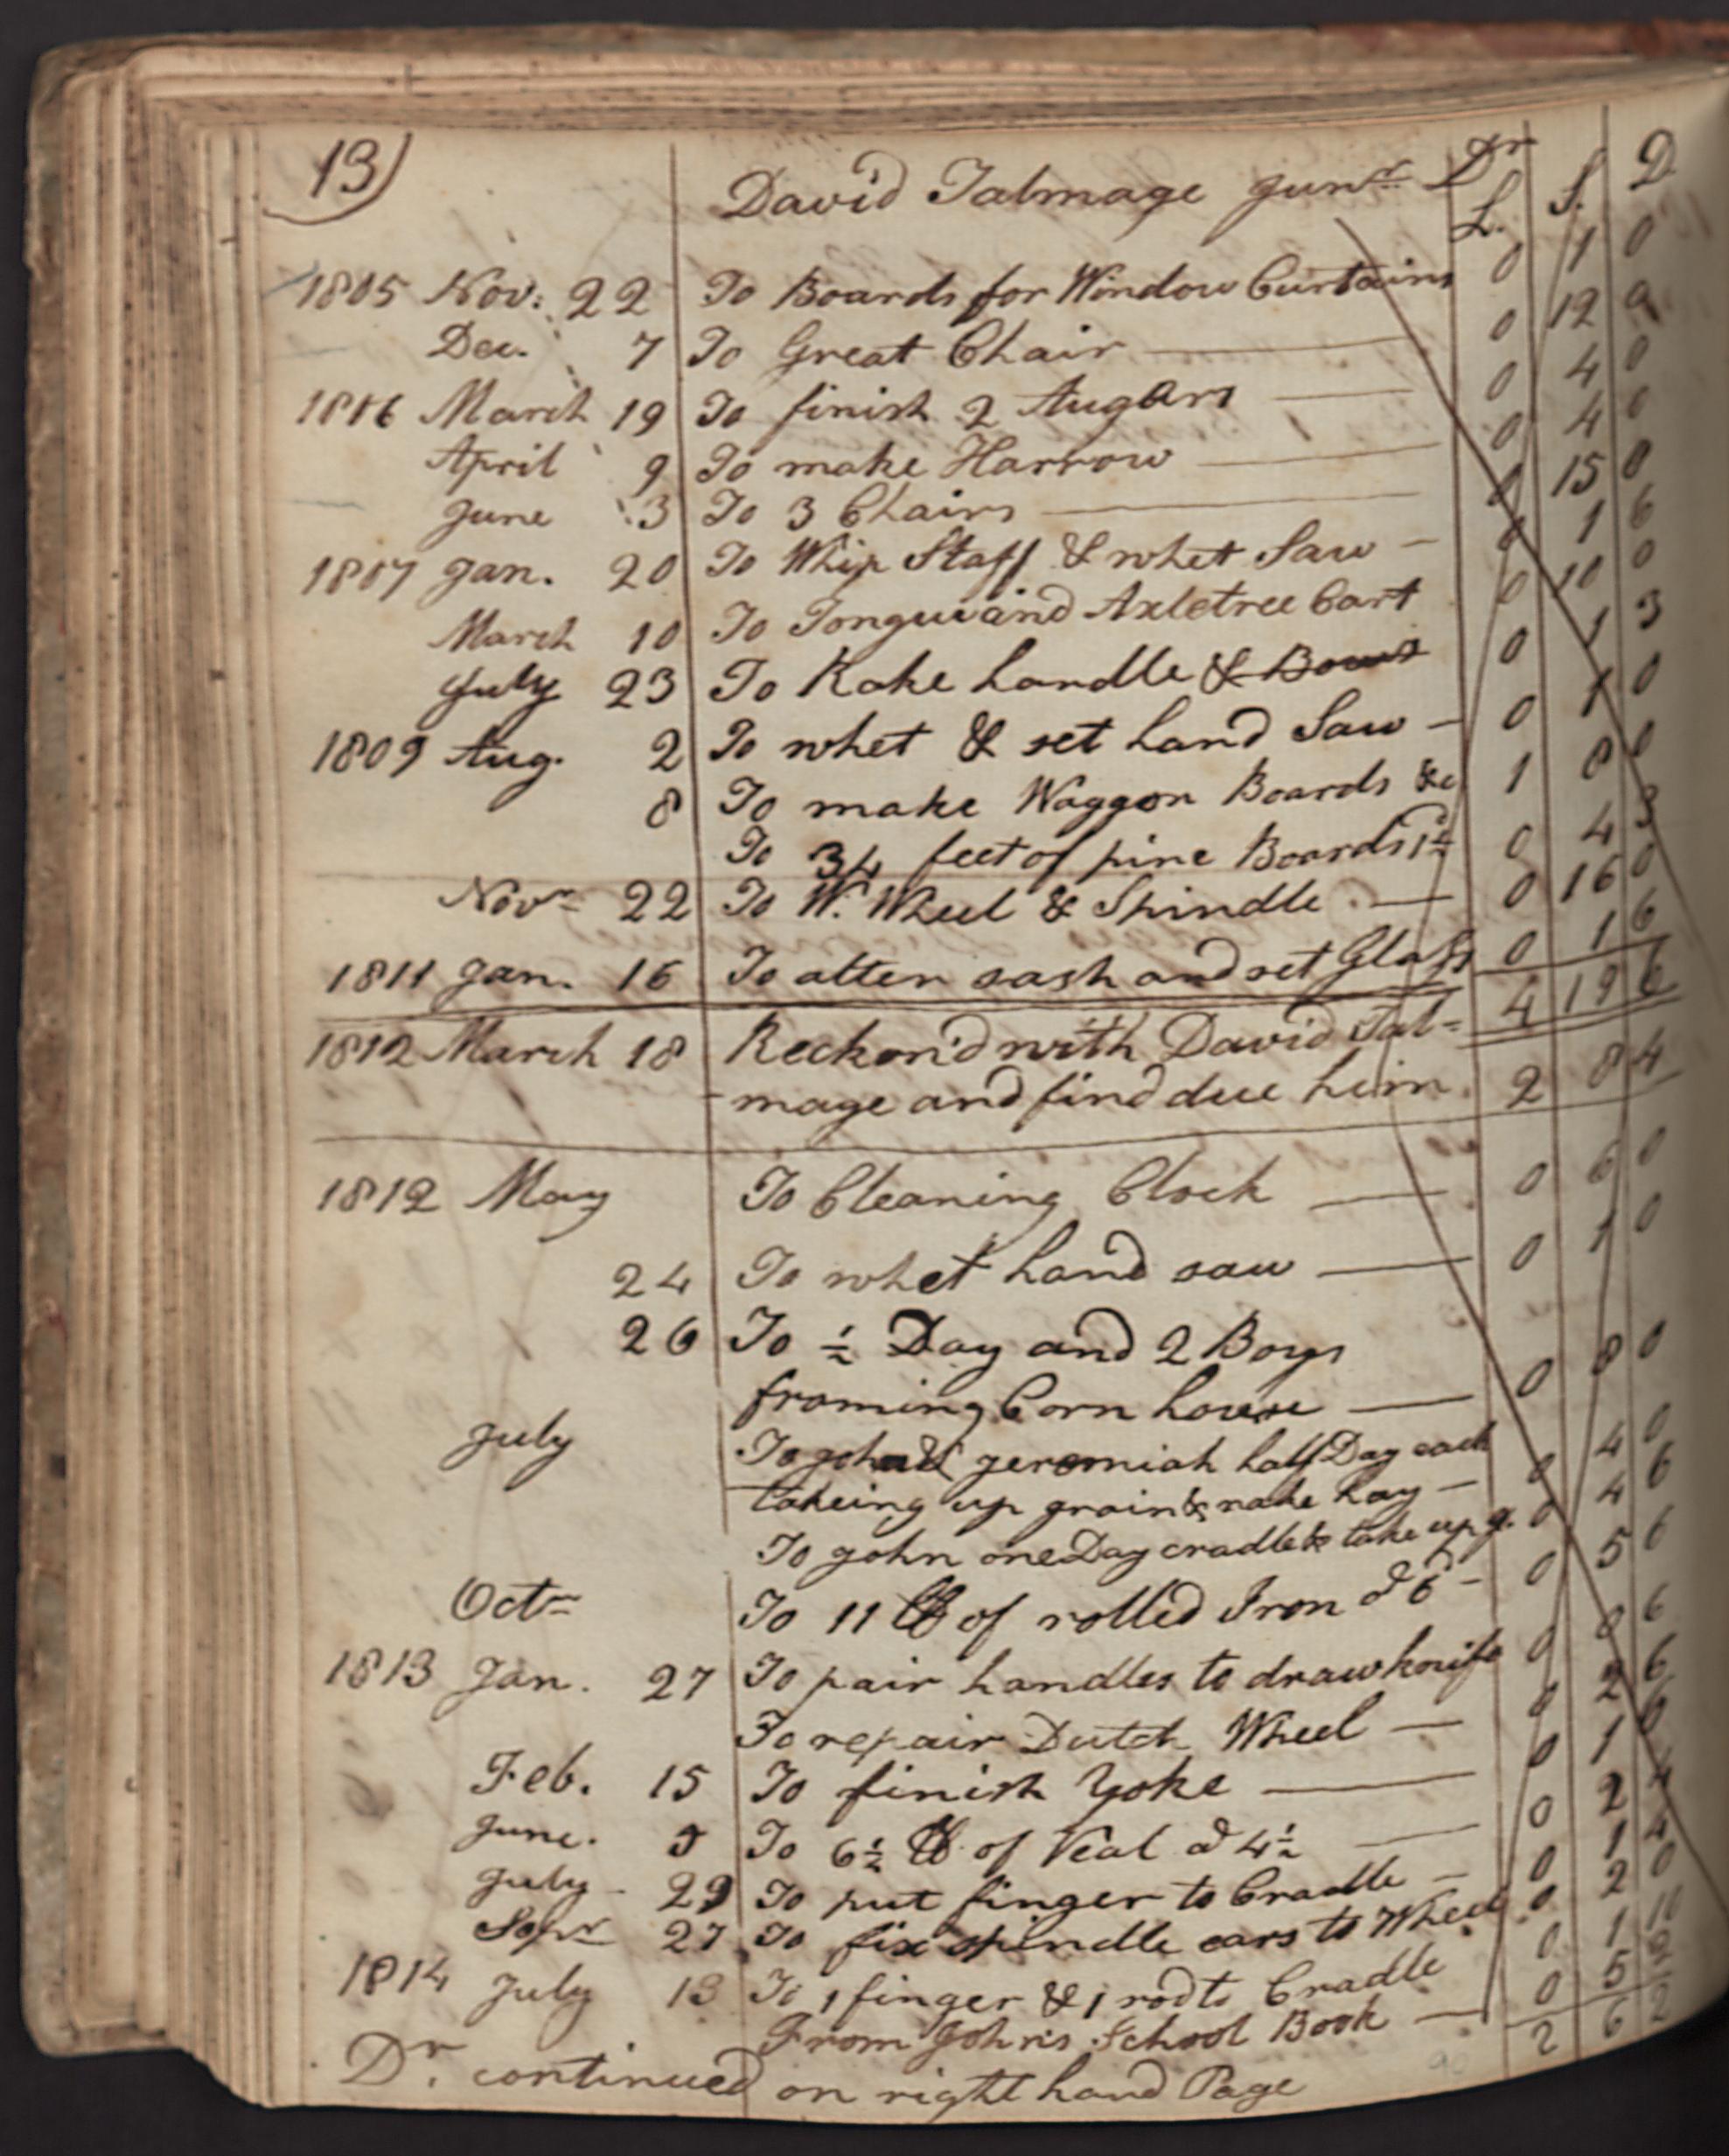 13)
David Talmage Junr. Dr
L. S. D
1805 Nov: 22 To Boards for Window Curtains 0 1 0
Dec. 7 To Great Chair 0 12 0
1806 March 19 To finish 2 Augars 0 4 0
April 9 To make Harrow 0 4 0
June 3 To 3 Chairs 0 15 0
1807 Jan. 20 To Whip Staff & whet Saw 0 1 6
March 10 To Tongue and Axletree Cart 0 10 0
July 23 To Rake handle & Bows 0 1 3
1809 Aug. 2 To whet & set hand Saw 0 1 0
8 To make Waggon Boards &c 1 8 0
To 34 feet of pine Boards 1½ 0 4 3
Novr 22 To W. Wheel & Spindle 0 16 0
1811 Jan. 16 To alter sash and set Glass 0 1 6
4 19 6
1812 March 18 Reckon'd with David Tal=
mage and find due him 2 8 4
1812 May To Cleaning Clock 0 6 0
24 To whet hand saw 0 1 0
26 To ½ Day and 2 Boys
framing Corn house 0 8 0
July To John & Jeremiah half Day each
takeing up grain & rake hay 0 4 0
To John one Day cradle & take up g. 0 4 6
Octr To 11 lb of rolled Iron @ 6 0 5 6
1813 Jan. 27 To pair handles to drawknife 0 0 6
To repair Dutch Wheel 0 2 6
Feb. 15 To finish Yoke 0 1
June. To 6½ lb of Veal @ 4½ 0 2
July 29 To put finger to Cradle 0 1 4
Sepr 27 To fix spindle ears to Wheel 0 2 0
1814 July 13 To 1 finger & 1 rod to Cradle 0 1 10
From John's School Book 0 5
2 6 2
Dr. continued on right hand Page